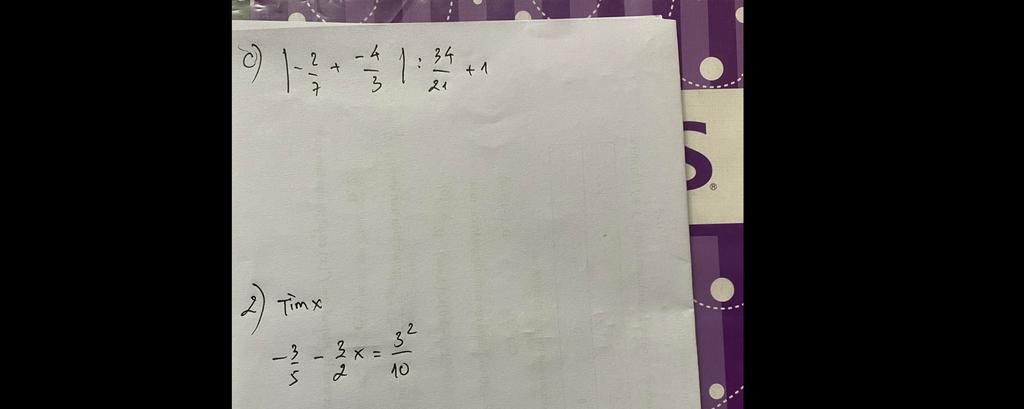 c) |-2/7 + -4/3| : 34/21 + 1
2) Tìm x
-3/5 - 3/2 x = 3²/10
S®